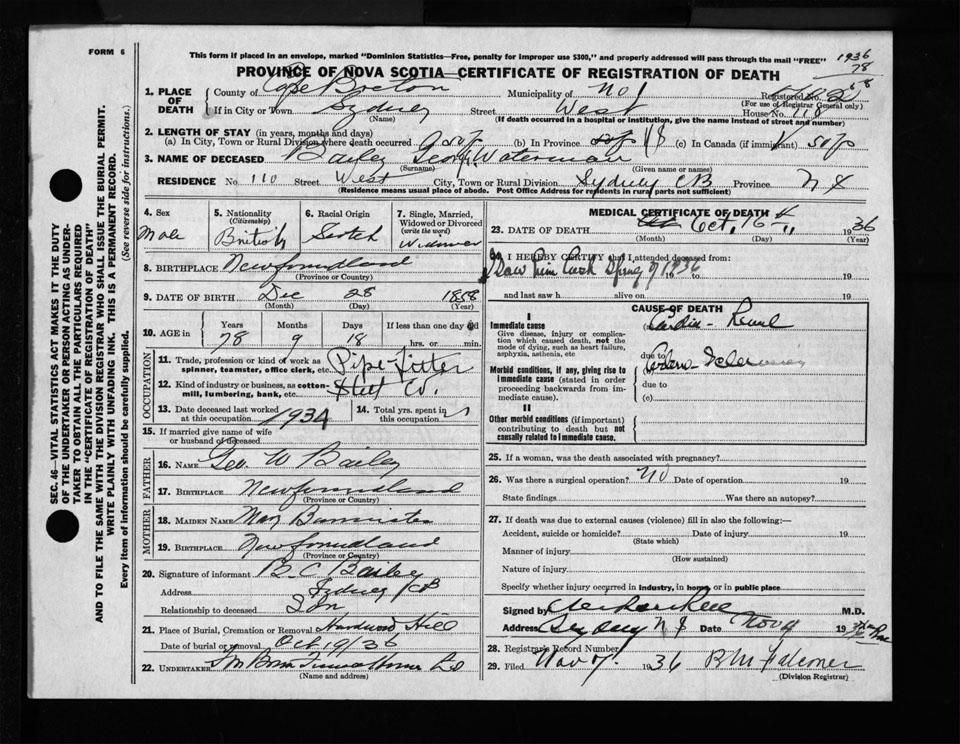 FORM 6
This form if placed in an envelope, marked "Dominion Statistics—Free, penalty for improper use $300," and properly addressed will pass through the mail "FREE"
1936
78
PROVINCE OF NOVA SCOTIA—CERTIFICATE OF REGISTRATION OF DEATH
1. PLACE OF DEATH
County of Cape Breton Municipality of No 1 Registered No.
(For use of Registrar General only)
If in City or Town Sydney Street West House No. 118
(Name) (If death occurred in a hospital or institution, give the name instead of street and number)
2. LENGTH OF STAY (in years, months and days)
(a) In City, Town or Rural Division where death occurred (b) In Province (c) In Canada (if immigrant)
3. NAME OF DECEASED Bailey Waterman
(Surname) (Given name or names)
RESIDENCE No. 110 Street West City, Town or Rural Division Sydney CB Province N S
(Residence means usual place of abode. Post Office Address for residents in rural parts not sufficient)
4. Sex
Male
5. Nationality
(Citizenship)
British
6. Racial Origin
Scotch
7. Single, Married, Widowed or Divorced
(write the word)
Widower
8. BIRTHPLACE Newfoundland
(Province or Country)
9. DATE OF BIRTH Dec 28 1858
(Month) (Day) (Year)
10. AGE in Years Months Days If less than one day old
78 9 18 hrs. or min.
OCCUPATION
11. Trade, profession or kind of work as spinner, teamster, office clerk, etc. Pipe Fitter
12. Kind of industry or business, as cotton-mill, lumbering, bank, etc. Steel Co.
13. Date deceased last worked at this occupation 1934
14. Total yrs. spent in this occupation
15. If married give name of wife or husband of deceased
FATHER
16. NAME Geo. W Bailey
17. BIRTHPLACE Newfoundland
(Province or Country)
MOTHER
18. MAIDEN NAME Mary Bannister
19. BIRTHPLACE Newfoundland
(Province or Country)
20. Signature of informant R. C. Bailey
Address Sydney CB
Relationship to deceased Son
21. Place of Burial, Cremation or Removal Hardwood Hill
Date of burial or removal Oct 19/36
22. UNDERTAKER
(Name and address)
MEDICAL CERTIFICATE OF DEATH
23. DATE OF DEATH Oct. 16 1936
(Month) (Day) (Year)
I HEREBY CERTIFY that I attended deceased from:
I Saw him last Spring of 1936 19 to 19
and last saw h alive on 19
CAUSE OF DEATH
I
Immediate cause
Give disease, injury or complication which caused death, not the mode of dying, such as heart failure, asphyxia, asthenia, etc
Cardio-Renal
due to
Morbid conditions, if any, giving rise to immediate cause (stated in order proceeding backwards from immediate cause).
due to
(c)
II
Other morbid conditions (if important) contributing to death but not causally related to immediate cause.
25. If a woman, was the death associated with pregnancy?
26. Was there a surgical operation? No Date of operation 19
State findings Was there an autopsy?
27. If death was due to external causes (violence) fill in also the following:—
Accident, suicide or homicide? Date of injury 19
(State which)
Manner of injury
(How sustained)
Nature of injury
Specify whether injury occurred in industry, in home, or in public place
Signed by M.D.
Address Sydney N S Date Nov 4 19
28. Registrar's Record Number
29. Filed Nov 7. 1936 R M Falconer
(Division Registrar)
SEC. 46—VITAL STATISTICS ACT MAKES IT THE DUTY
OF THE UNDERTAKER OR PERSON ACTING AS UNDER-
TAKER TO OBTAIN ALL THE PARTICULARS REQUIRED
IN THE "CERTIFICATE OF REGISTRATION OF DEATH"
AND TO FILE THE SAME WITH THE DIVISION REGISTRAR WHO SHALL ISSUE THE BURIAL PERMIT.
WRITE PLAINLY WITH UNFADING INK. THIS IS A PERMANENT RECORD.
Every item of information should be carefully supplied. (See reverse side for instructions.)